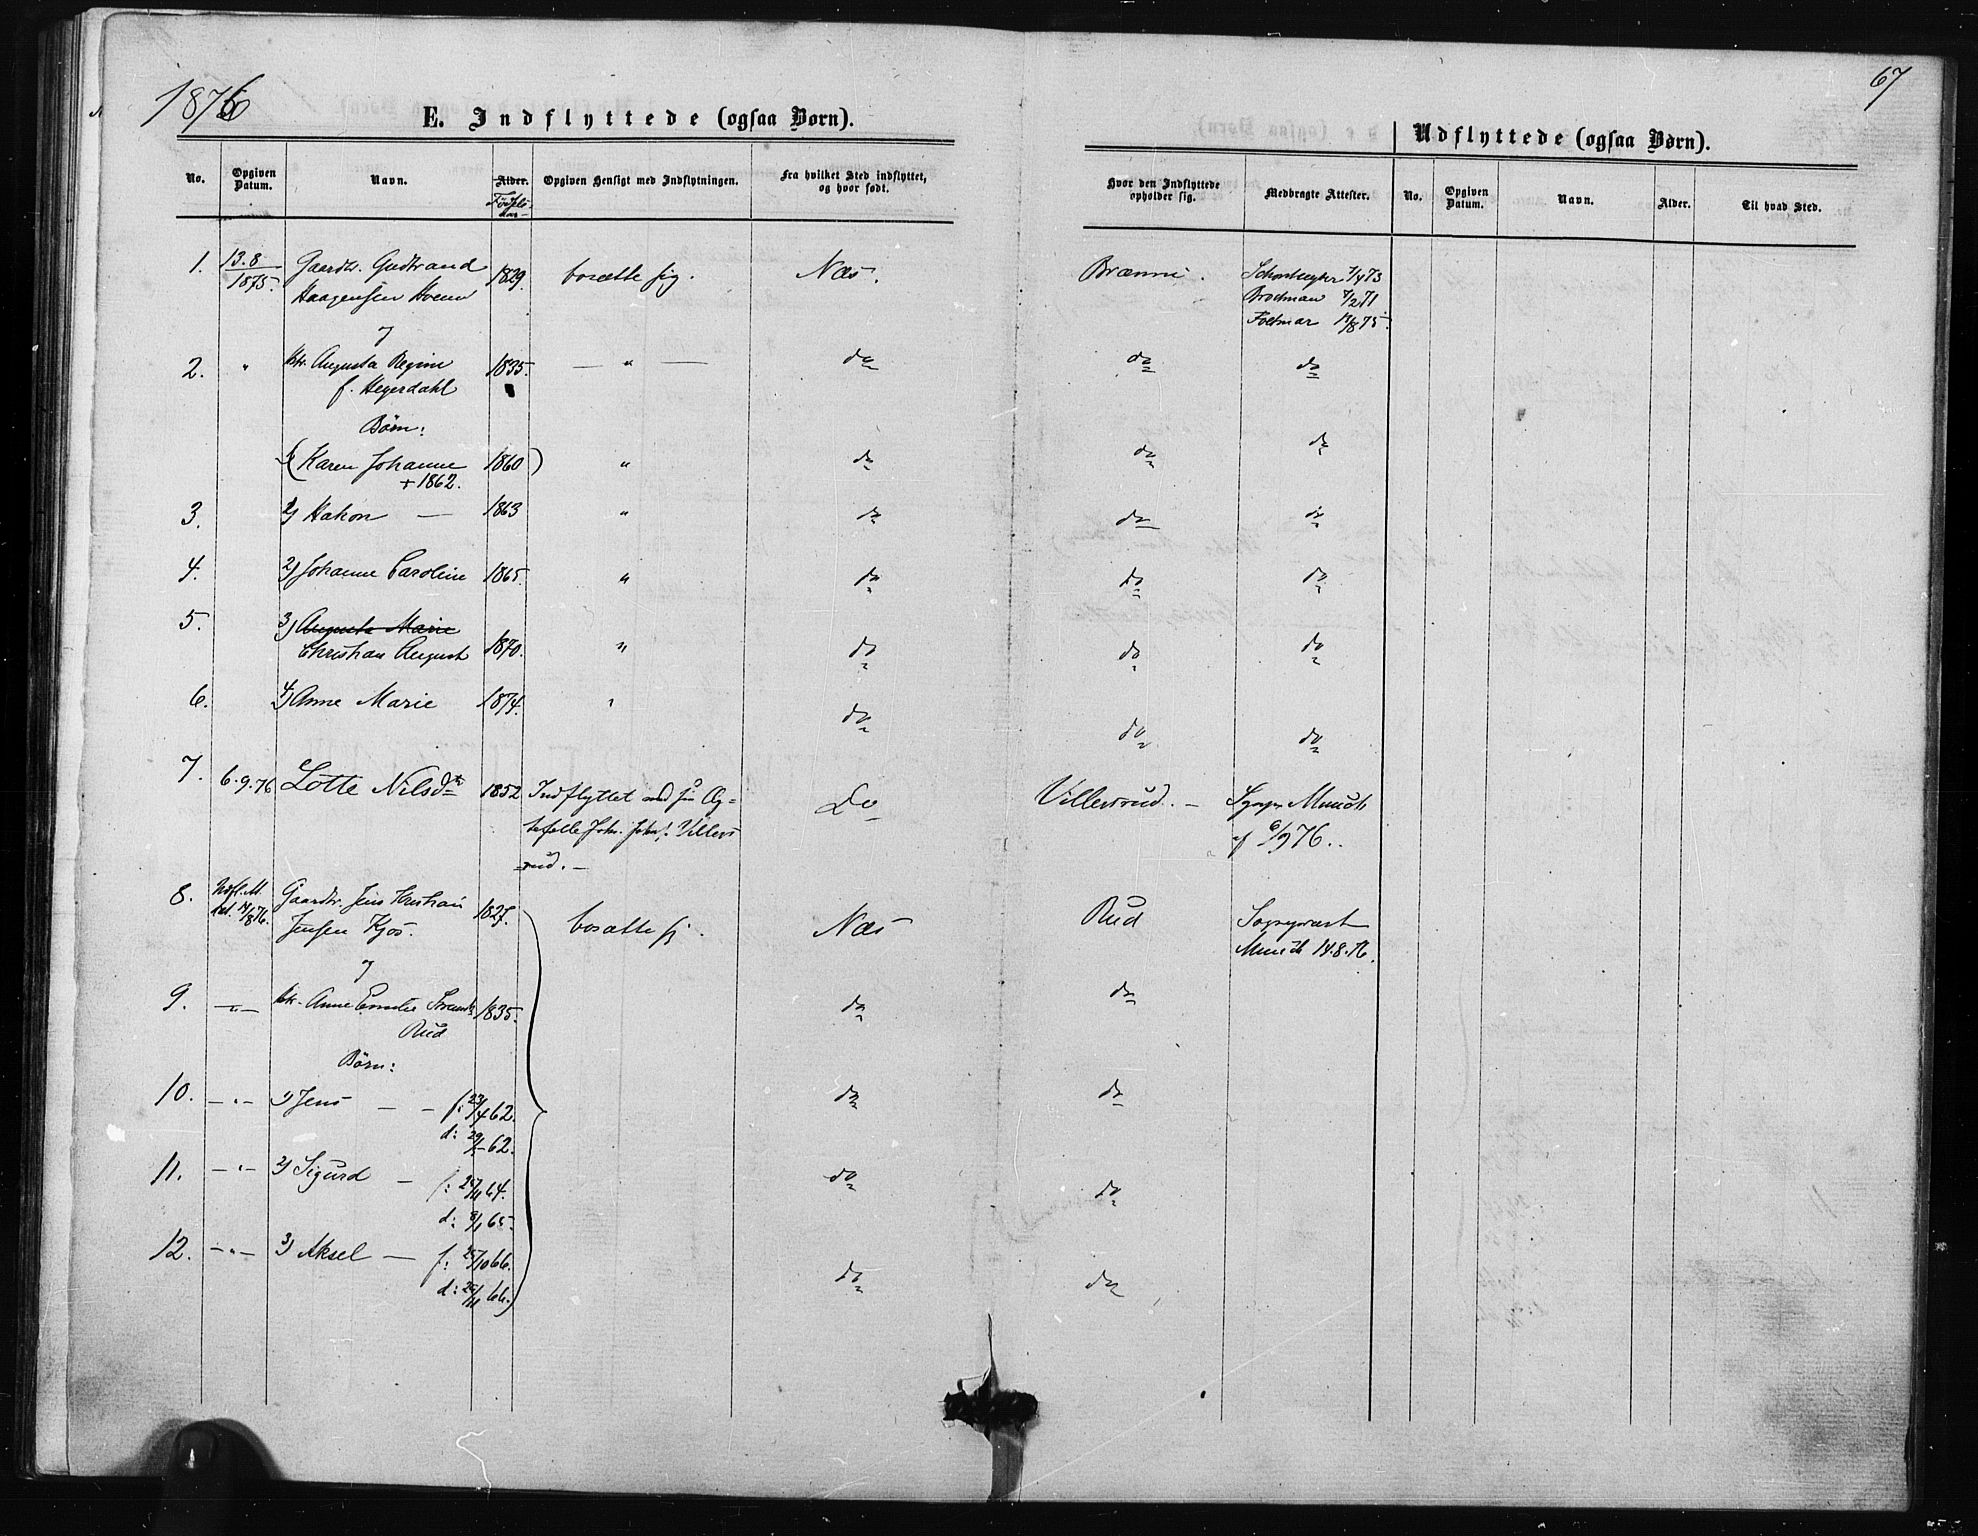 1876
67
E. Indflyttede (ogsaa Børn).
Udflyttede (ogsaa Børn).
No. Opgiven Datum. Navn. Alder. Fødsels- aar- Opgiven Hensigt med Indflytningen. Fra hvilket Sted indflyttet, og hvor født. Hvor den Indflyttede opholder sig. Medbragte Attester. No. Opgiven Datum. Navn. Alder. Til hvad Sted.
1. 13.8 1875. Gaardbr. Gudbrand 1829. bosætte sig. Næs. Brænni. 7/4 73
Haagensen 7/2 71
Foltmar 14/8 75.
og
2. " Augusta Regine 1835. — " — do do do
f. Heyerdahl
Børn:
1) (Karen Johanne 1860) " do do do
+ 1862.
3. 2) Hakon — 1863 " do do do
4. 2) Johanne Caroline 1865. " do do do
5. 3) Auguste Marie
Christian August 1870. " do do do
6. 4) Anne Marie 1874. " do do do
7. 6.9.76 Lotte Nilsdtr 1852 Indflyttet med sin Æg= Do Villersrud. — Sgnpr Munch
tefelle Joh. Joh. Villers af 6/9 76.
=rud. —
8. Indfl. M. Gaardbr. Jens Kristian 1827. bosætte sig. Næs Rud Sogneprest
14/8 76. Jensen Kjos. Munch 14.8.76.
og
9. — " — Anne 1835. do do
Rud
Børn:
10. — " — 1) Jens — — f: 23/4 62. do do
d: 29/- 62.
11. — " — 2) Sigurd — f: 25/11 64. do do
d: 8/1 65.
12. — " — 3) Aksel — f: 25/10 66. do do
d: 25/11 66.